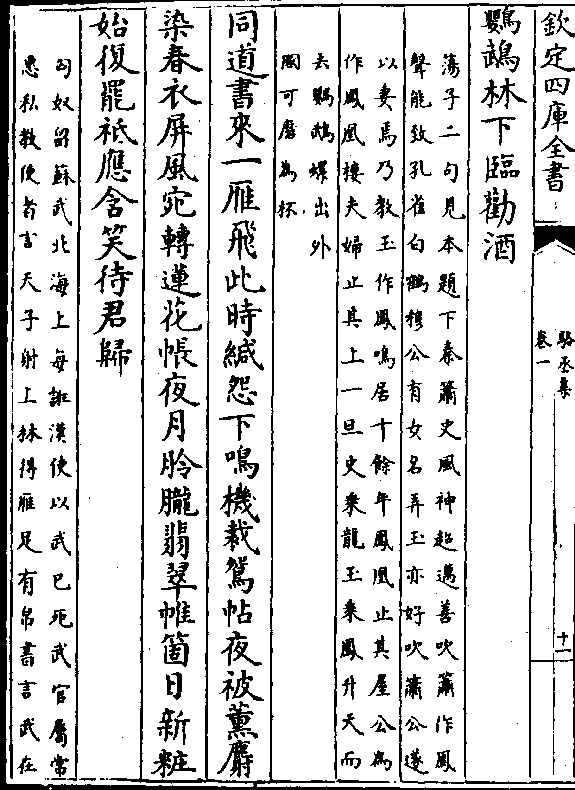 欽定四庫全書
駱丞集
卷一
十一
鸚鵡林下臨勸酒
蕩子二句見本題下秦蕭史風神超邁善吹蕭作鳳
聲能致孔雀白鶴穆公有女名弄玉亦好吹蕭公遂
以妻焉乃教玉作鳳鳴居十餘年鳳凰止其屋公為
作鳳凰樓夫婦止其上一旦史乗龍玉乗鳳升天而
去鸚鵡螺出外
國可磨為杯
同道書來一雁飛此時緘怨下鳴機裁鴛帖夜被薫麝
染春衣屏風宛轉蓮花帳夜月朎朧翡翠帷箇日新粧
始復罷祗應含笑待君歸
匈奴留蘇武北海上每誑漢使以武已死武官屬常
惠私教使者言天子射上林得雁足有帛書言武在